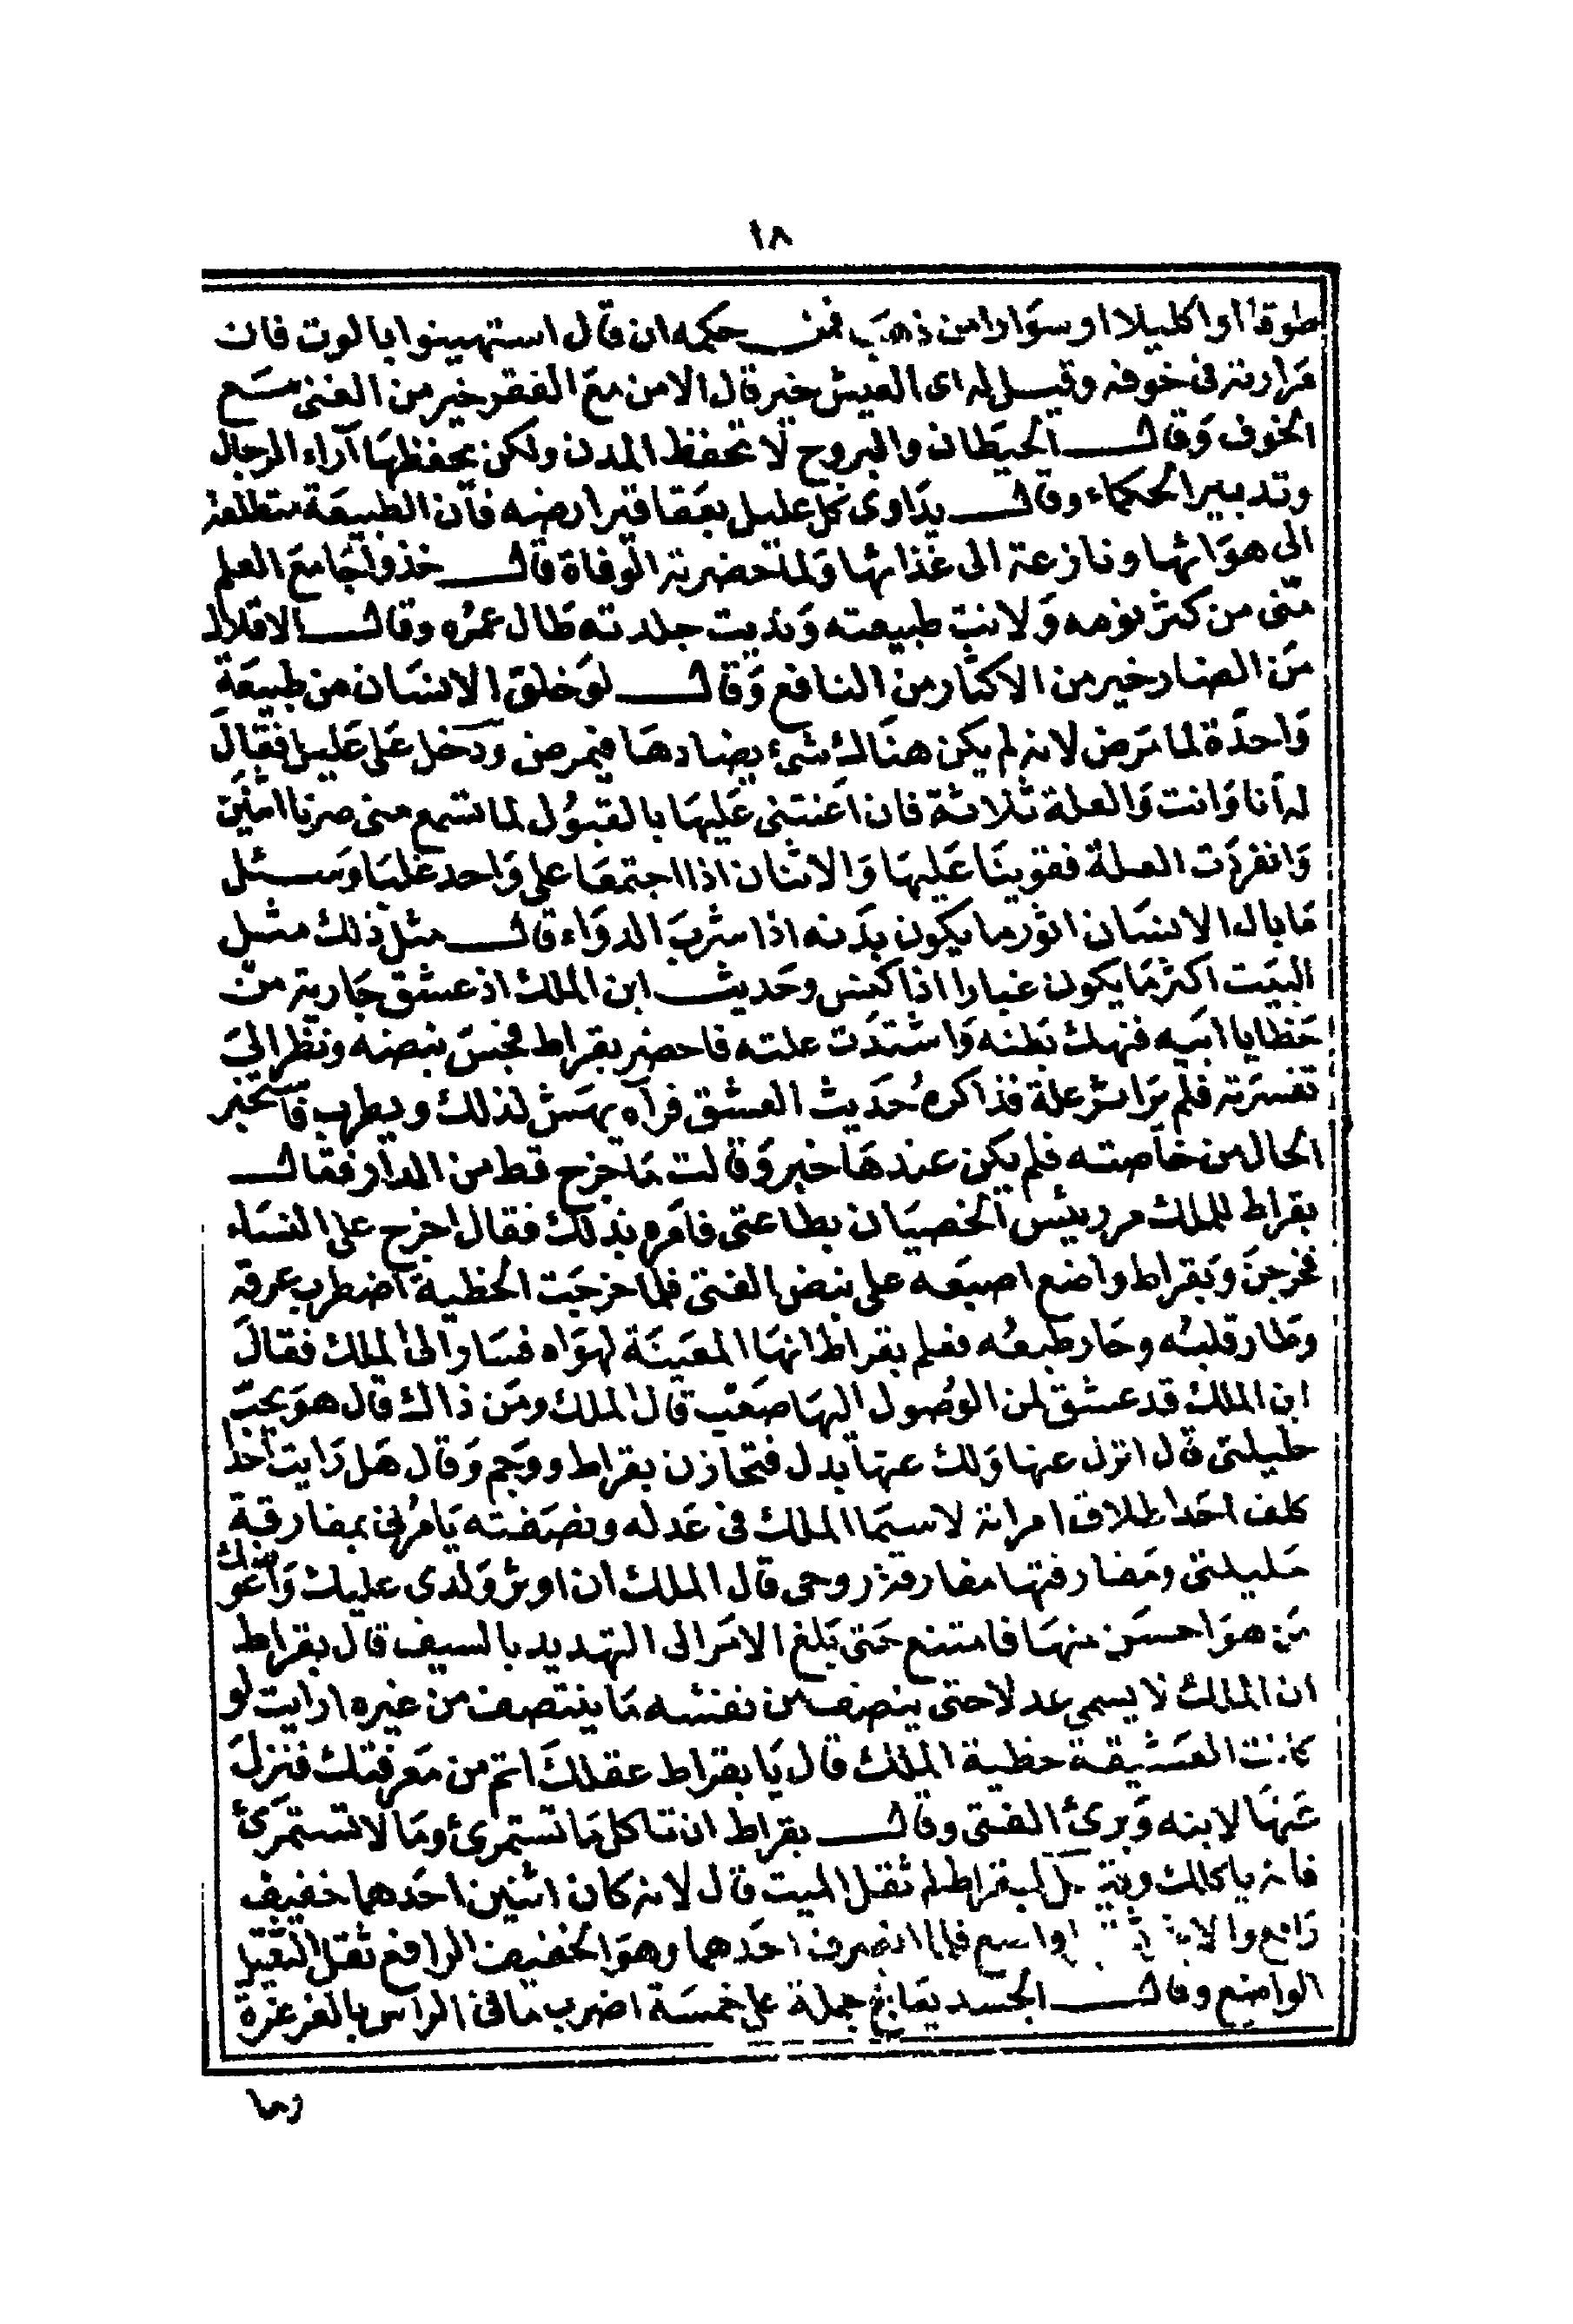 ١٨
طوقا او اكليلا او سوارا من ذهب فمن حكمه ان قال استهينوا بالموت فان
مرارته فى خوفه وقيل له اى العيش خير قال الامن مع الفقر خير من الغنى مع
الخوف وقال الحيطان والبروج لا تحفظ المدن ولكن يحفظها آراء الرجال
وتدبير الحكماء وقال يداوى كل عليل بعقاقير ارضه فان الطبيعة متطلعة
الى هوائها ونازعة الى غذائها ولما حضرته الوفاة قال خذوا جامع العلم
منى من كثر نومه ولانت طبيعته ونديت جلدته طال عمره وقال الاقلال
من الضار خير من الاكثار من النافع وقال لو خلق الانسان من طبيعة
واحدة لما مرض لانه لم يكن هناك شئ يضادها فيمرض ودخل على عليل فقال
له أنا وانت والعلة ثلاثة فان اعنتنى عليها بالقبول لما تسمع منى صرنا اثنين
وانفردت العلة فقوينا عليها والاثنان اذا اجتمعا على واحد غلبا وسئل
ما بال الانسان اثور ما يكون بدنه اذا شرب الدواء قال مثل ذلك مثل
البيت اكثر ما يكون غبارا اذا كنس وحديث ابن الملك اذ عشق جارية من
حظايا ابيه فنهك بطنه واشتدت علته فاحضر بقراط فجس نبضه ونظر الى
تفسرته فلم ير اثر علة فذاكره حديث العشق فرآه يهش لذلك ويطرب فاستخبر
الحال من خاصته فلم يكن عندها خبر وقالت ما خرج قط من الدار فقال
بقراط للملك مر رئيس الخصيان بطاعتى فامره بذلك فقال اخرج على النساء
فخرجن وبقراط واضع اصبعه على نبض الفتى فلما خرجت الحظية اضطرب عرقه
وطار قلبه وحار طبعه فعلم بقراط انها المعينة لهواه فسار الى الملك فقال
ابن الملك قد عشق لمن الوصول اليها صعب قال الملك ومن ذاك قال هو يحب
حليلتى قال انزل عنها ولك عنها بدل فتحازن بقراط ووجم وقال هل رايت احدا
كلف احدا طلاق امراته لا سيما الملك فى عدله ونصفته يأمرنى بمفارقة
حليلتى ومفارقتها مفارقة روحى قال الملك ان اوثر ولدى عليك واعوضك
من هو احسن منها فامتنع حتى بلغ الامر الى التهديد بالسيف قال بقراط
ان الملك لا يسمى عدلا حتى ينصف من نفسه ما ينتصف من غيره ارايت لو
كانت العشيقة حظية الملك قال يا بقراط عقلك اتم من معرفتك فنزل
عنها لابنه وبرئ الفتى وقال بقراط ان تاكل ما تستمرئ وما لا تستمرئ
فانه ياكلك وقيل لبقراط لم ثقل الميت قال لانه كان اثنين احدهما خفيف
رافع والاخر واضع فلما انصرف احدهما وهو الخفيف الرافع ثقل الثقيل
الواضع وقال الجسد يعالج جملة على خمسة اضرب ما فى الراس بالغرغرة
وما